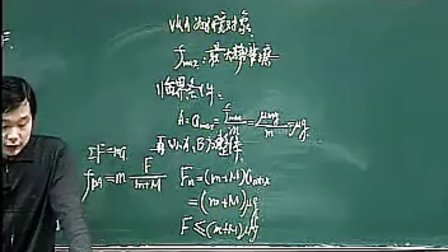 以A为研究对象
fmax=最大静摩擦
临界条件:
a=amax=fmax/m=μmg/m=μg
再以A,B为整体
ΣF=ma
fBA=m F/(m+M)
Fm=(m+M)amax
=(m+M)μg
F≤(m+M)μg